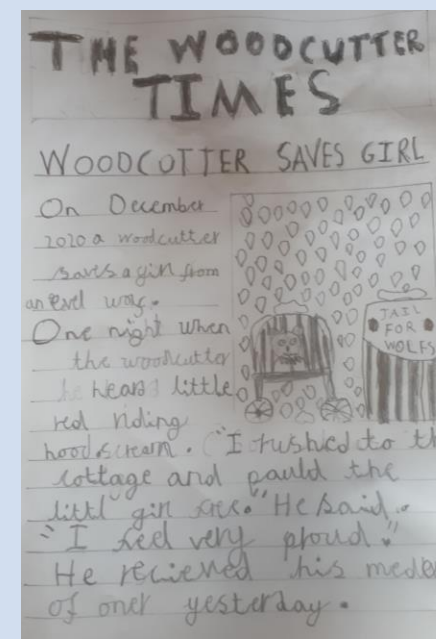 THE WOODCUTTER
TIMES
WOODCOTTER SAVES GIRL
On December
2020 a woodcutter
saves a girl from
an evel
One night when
the woodcutter
he hears little
red riding
JAIL
FOR
WOLFS
hood scream. "I rushed to th
cottage and pauld the
littl girl He said.
"I feel very proud."
He recieved his
of oner yesterday.